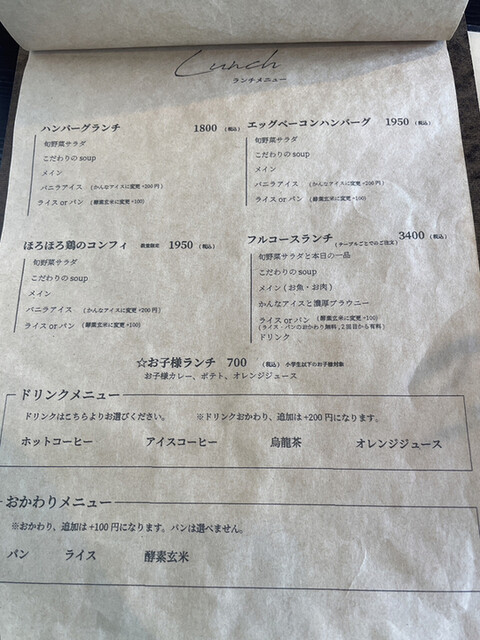 Lunch
ランチメニュー
ハンバーグランチ 1800 (税込)
旬野菜サラダ
こだわりの soup
メイン
バニラアイス (かんなアイスに変更 +200 円)
ライス or パン (酵素玄米に変更 +100)
エッグベーコンハンバーグ 1950 (税込)
旬野菜サラダ
こだわりの soup
メイン
バニラアイス (かんなアイスに変更 +200 円)
ライス or パン (酵素玄米に変更 +100)
ほろほろ鶏のコンフィ 数量限定 1950 (税込)
旬野菜サラダ
こだわりの soup
メイン
バニラアイス (かんなアイスに変更 +200 円)
ライス or パン (酵素玄米に変更 +100)
フルコースランチ (テーブルごとでのご注文) 3400 (税込)
旬野菜サラダと本日の一品
こだわりの soup
メイン ( お魚・お肉 )
かんなアイスと濃厚ブラウニー
ライス or パン (酵素玄米に変更 +100)
(ライス・パンのおかわり無料 , 2 回目から有料)
ドリンク
☆お子様ランチ 700 (税込) 小学生以下のお子様対象
お子様カレー、ポテト、オレンジジュース
ドリンクメニュー
ドリンクはこちらよりお選びください。 ※ドリンクおかわり、追加は +200 円になります。
ホットコーヒー アイスコーヒー 烏龍茶 オレンジジュース
おかわりメニュー
※おかわり、追加は +100 円になります。パンは選べません。
パン ライス 酵素玄米